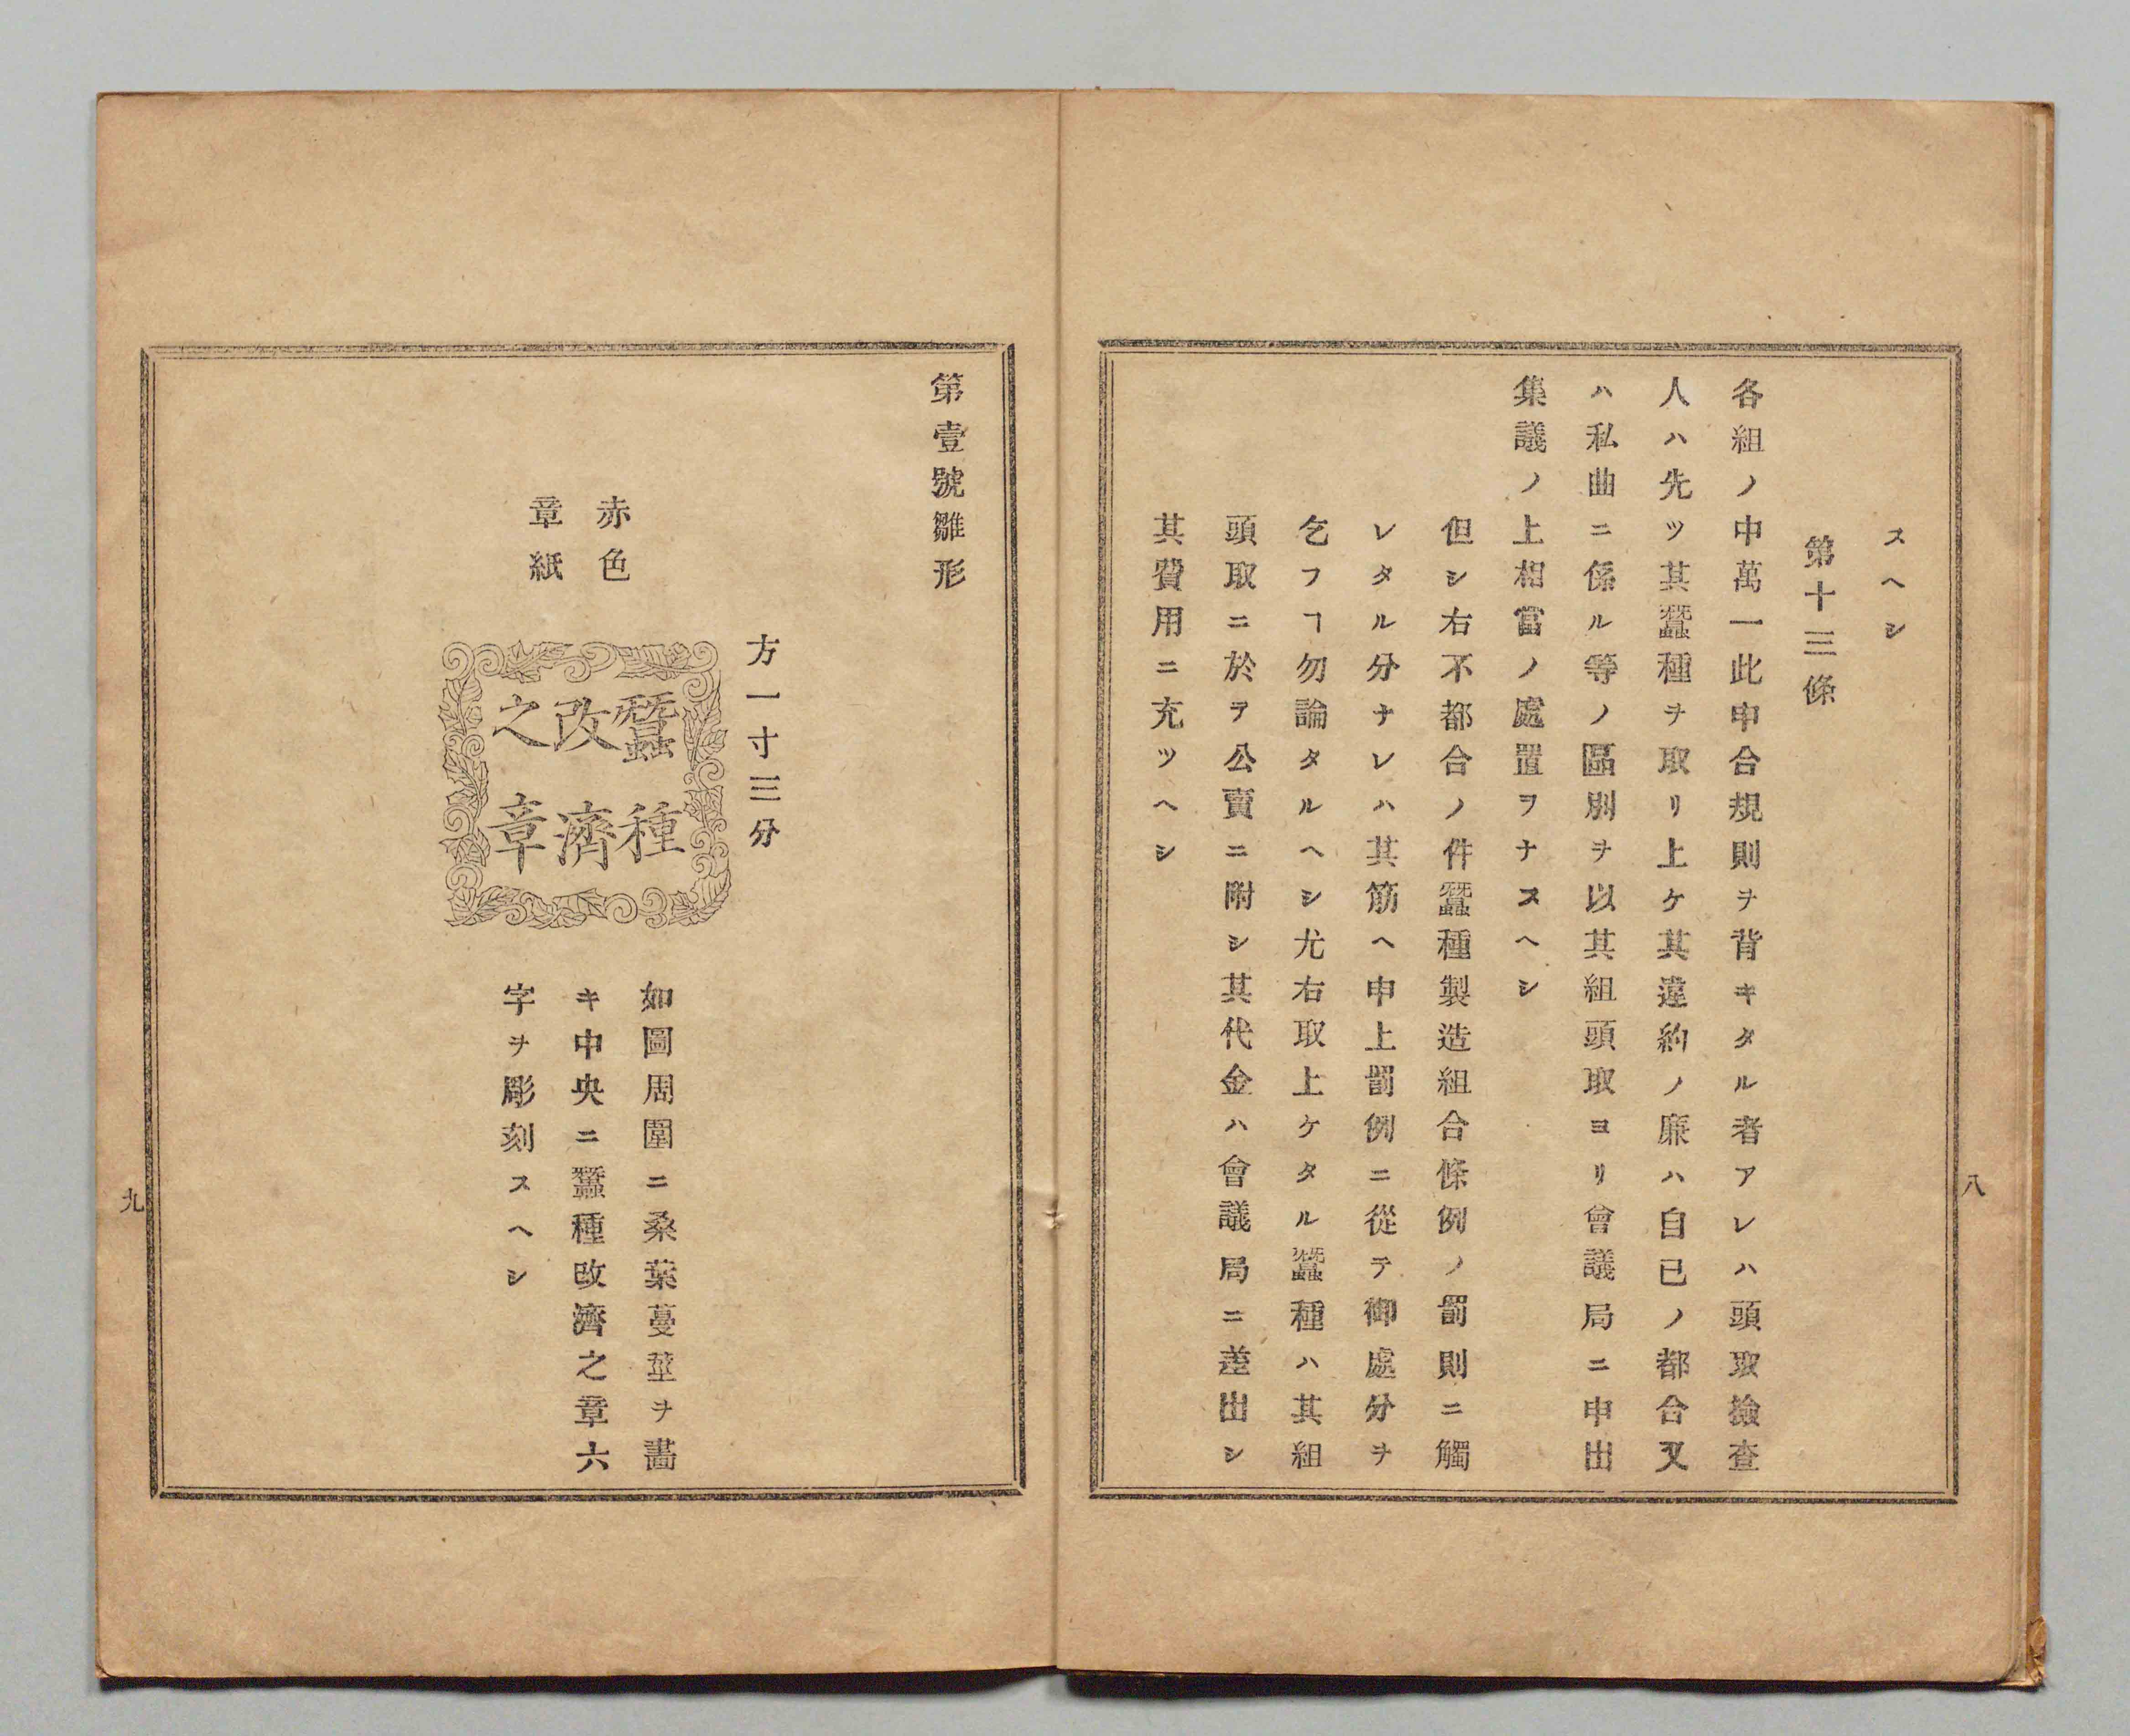 スヘシ
第十三條
各組ノ中萬一此申合規則ヲ背キタル者アレハ頭取撿査
人ハ先ツ其蠶種ヲ取リ上ケ其違約ノ廉ハ自已ノ都合又
ハ私曲ニ係ル等ノ區別ヲ以其組頭取ヨリ會議局ニ申出
集議ノ上相當ノ處置ヲナスヘシ
但シ右不都合ノ件蠶種製造組合條例ノ罰則ニ觸
レタル分ナレハ其筋ヘ申上罰例ニ從テ御處分ヲ
乞フヿ勿論タルヘシ尤右取上ケタル蠶種ハ其組
頭取ニ於テ公賣ニ附シ其代金ハ會議局ニ差出シ
其費用ニ充ツヘシ
八
第壹號雛形
方一寸三分
赤色
章紙
蠶種
改濟
之章
如圖周圍ニ桑葉蔓莖ヲ畵
キ中央ニ蠶種改濟之章六
字ヲ彫刻スヘシ
九